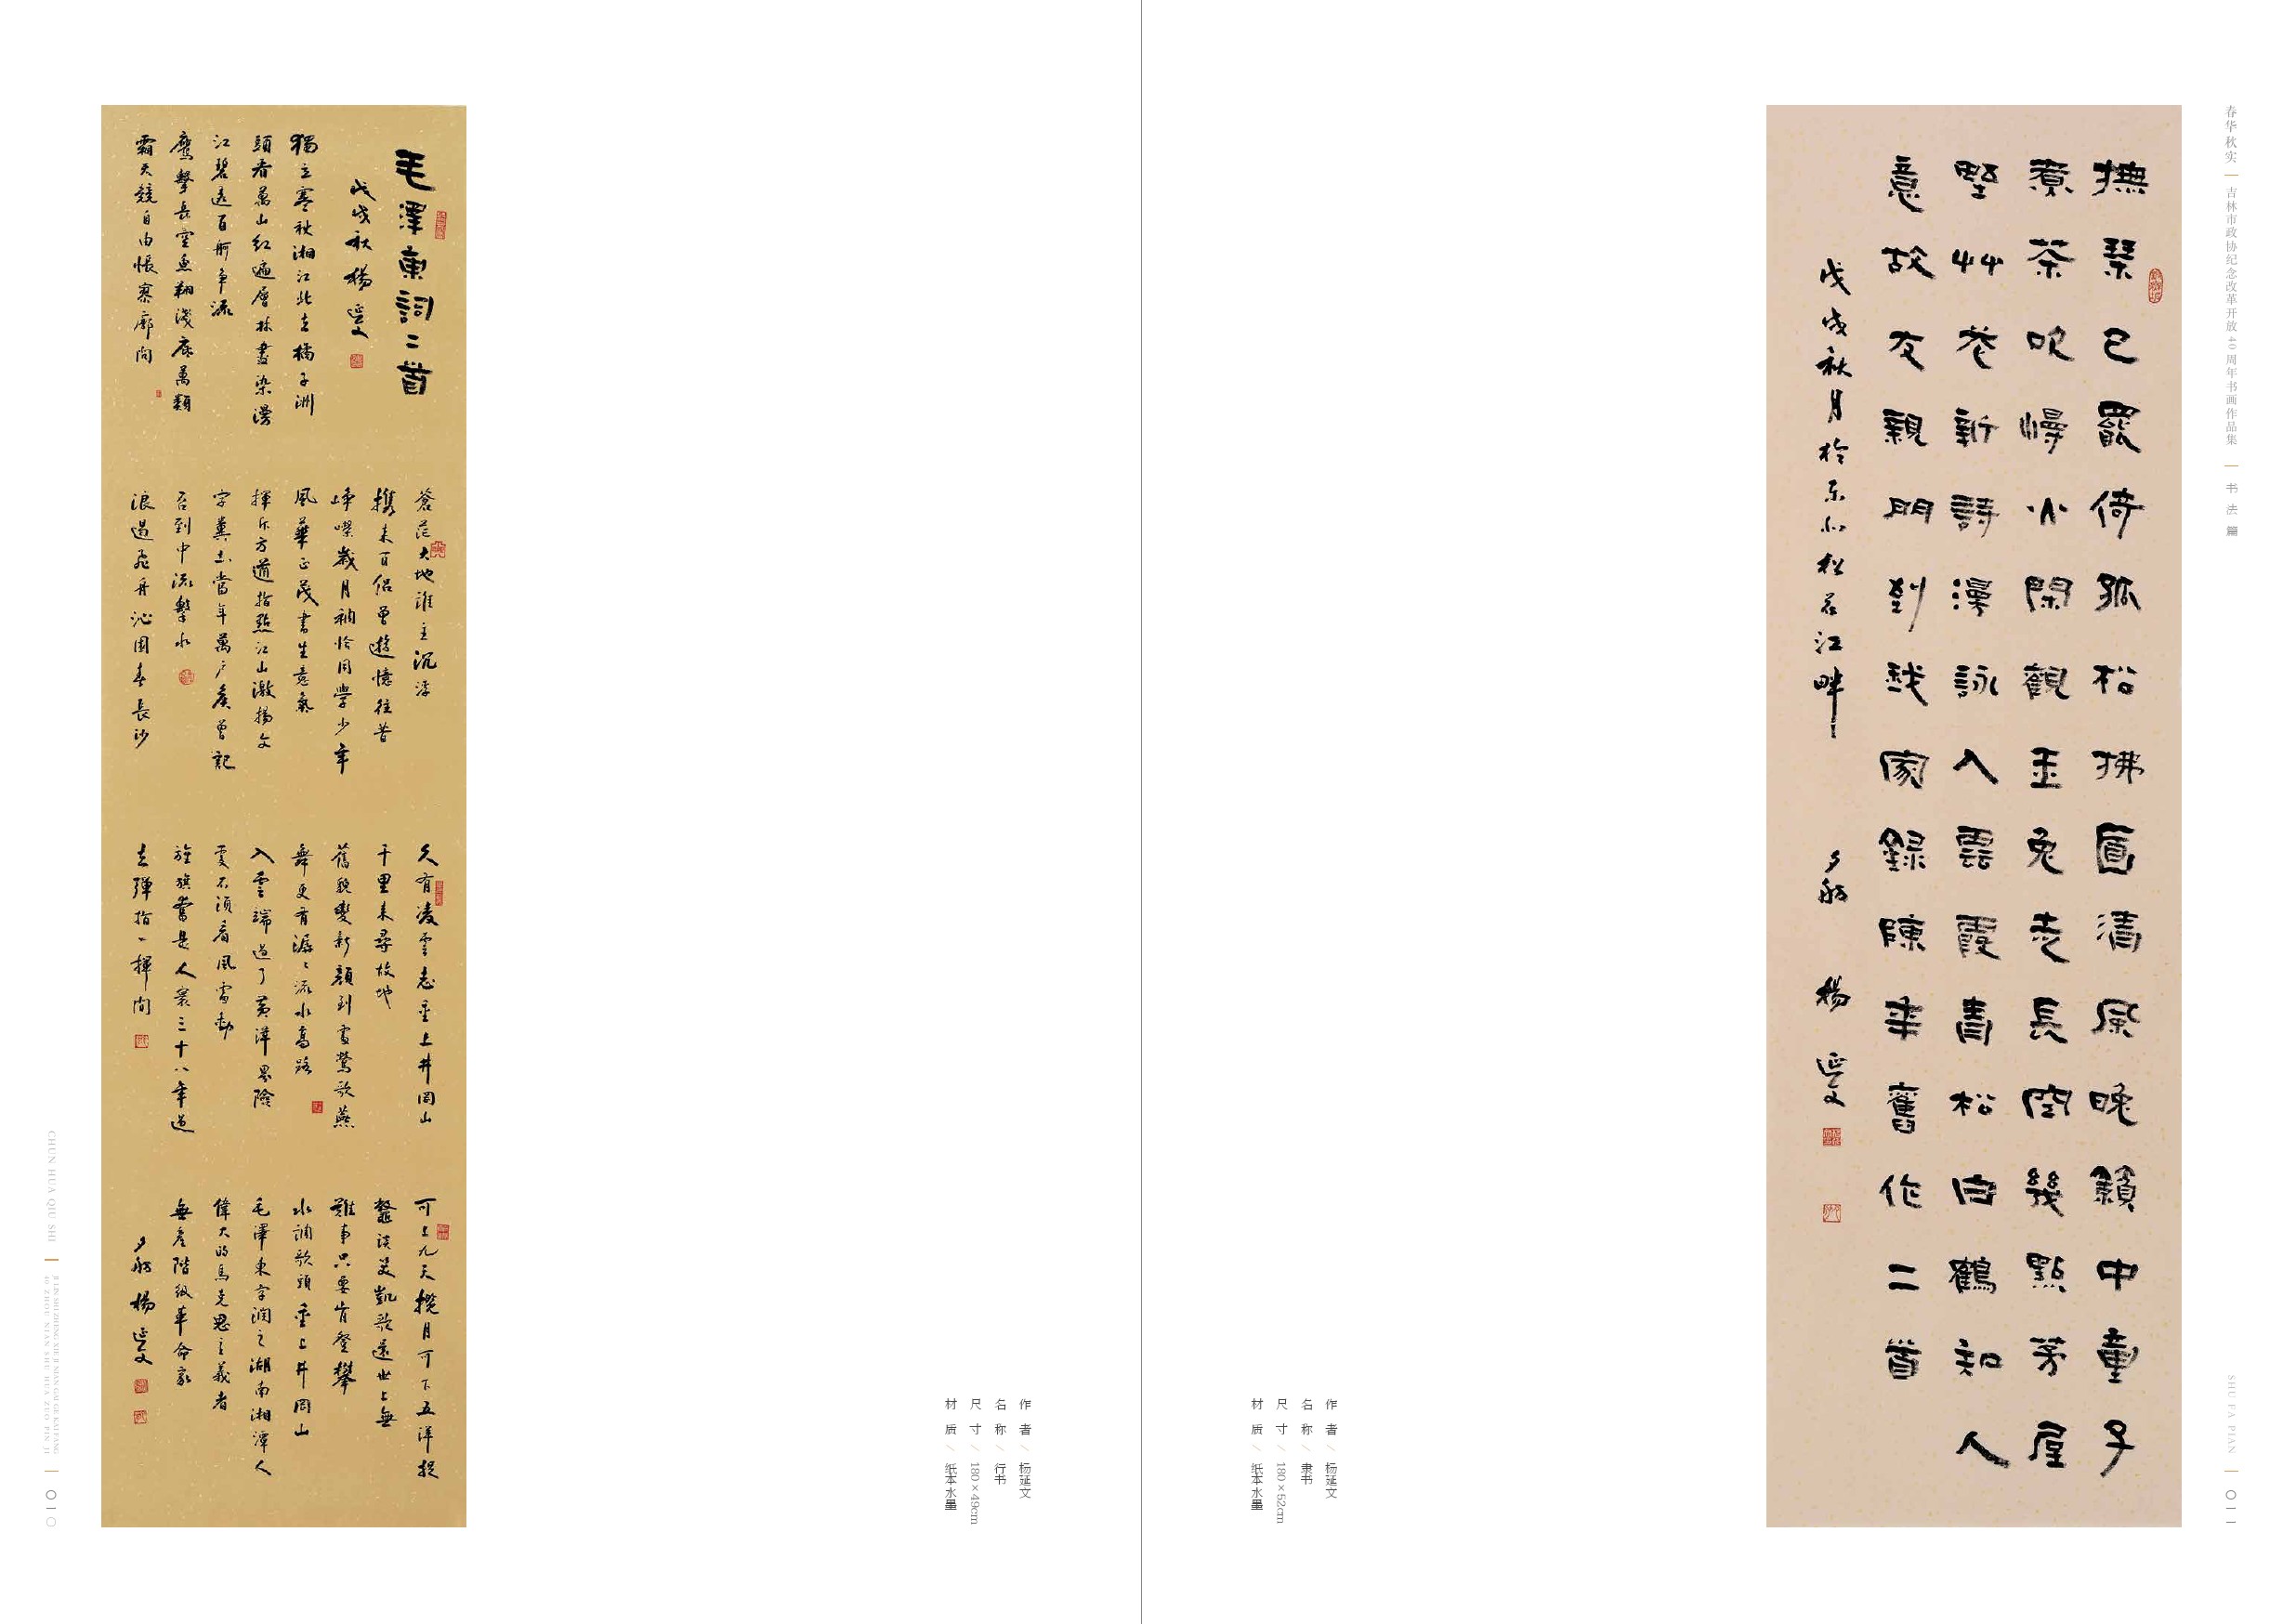 毛澤東詞二首
戊戌秋楊延文
獨立寒秋湘江北去橘子洲
頭看萬山紅遍層林盡染漫
江碧透百舸爭流
鷹擊長空魚翔淺底萬類
霜天競自由悵寥廓問
蒼茫大地誰主沉浮
攜來百侶曾遊憶往昔
崢嶸歲月稠恰同學少年
風華正茂書生意氣
揮斥方遒指點江山激揚文
字糞土當年萬戶侯曾記
否到中流擊水
浪遏飛舟沁園春長沙
久有凌雲志重上井岡山
千里來尋故地
舊貌變新顏到處鶯歌燕
舞更有潺潺流水高路
入雲端過了黃洋界險
處不須看風雷動
旌旗奮是人寰三十八年過
去彈指一揮間
可上九天攬月可下五洋捉
鱉談笑凱歌還世上無
難事只要肯登攀
水調歌頭重上井岡山
毛澤東字潤之湖南湘潭人
偉大的馬克思主義者
無產階級革命家
夕舫楊延文
作者/杨延文
名称/行书
尺寸/180×49cm
材质/纸本水墨
CHUN HUA QIU SHI
JI LIN SHI ZHENG XIE JI NIAN GAI GE KAI FANG
40 ZHOU NIAN SHU HUA ZUO PIN JI
010
撫琴已罷倚孤松拂面清風晚籟中童子
煮茶吹慢火閑觀玉兔走長空幾點茅屋
野艸花新詩漫詠入雲霞青松白鶴知人
意故友親朋到我家錄陳年舊作二首
戊戌秋月於東北松花江畔 夕舫 楊延文
作者/杨延文
名称/隶书
尺寸/180×52cm
材质/纸本水墨
春华秋实 吉林市政协纪念改革开放40周年书画作品集 书法篇
SHU FA PIAN
011